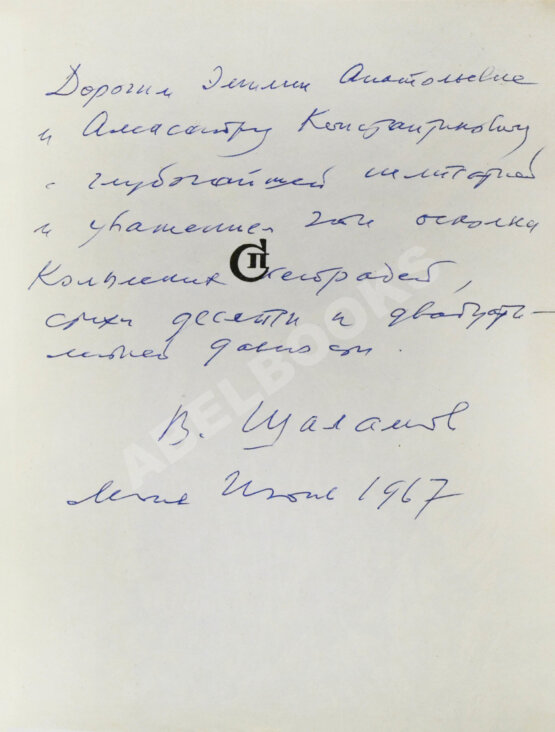 Дорогим Эмилии Анатольевне
и Александру Константиновичу
с глубочайшей симпатией
и уважением эти осколки
Колымских тетрадей,
СП
стихи десяти и двадцати-
летней давности.
В. Шаламов
Июнь 1967
ABELBOOKS